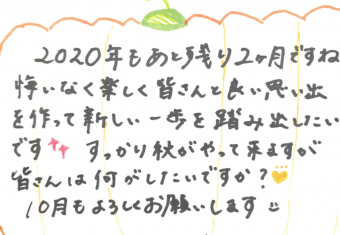 2020年もあと残り2ヶ月ですね
悔いなく楽しく皆さんと良い思い出
を作って新しい一歩を踏み出したい
です すっかり秋がやって来ますが
皆さんは何がしたいですか?
10月もよろしくお願いします